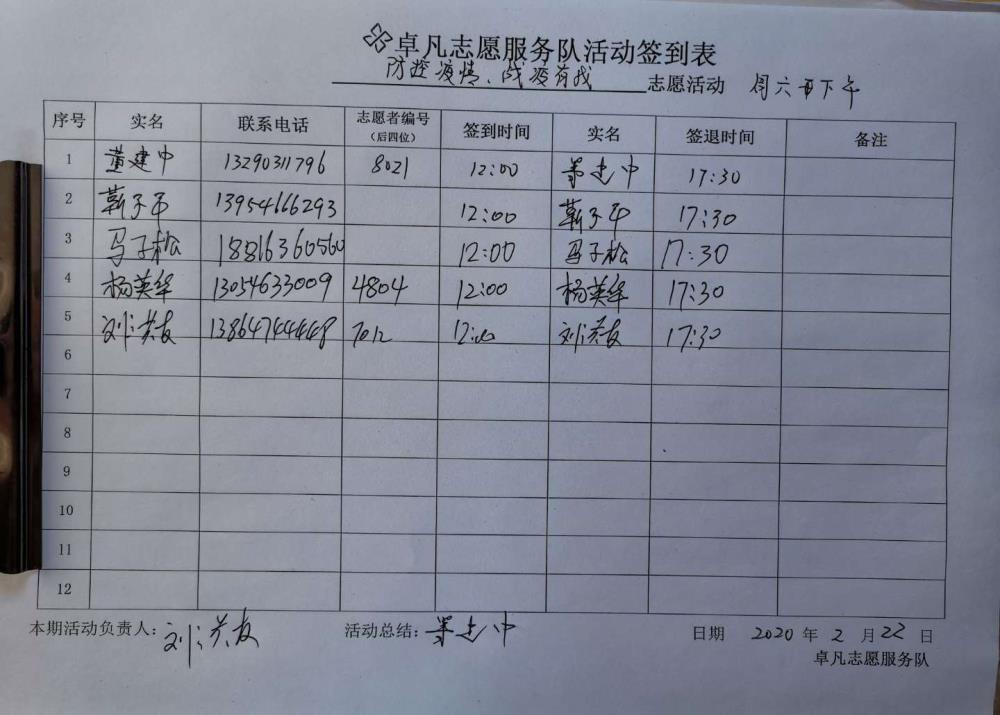 卓凡志愿服务队活动签到表
防控疫情、战疫有我 志愿活动 周六 下午
序号 实名 联系电话 志愿者编号（后四位） 签到时间 实名 签退时间 备注
1 董建中 13290311796 8021 12:00 董建中 17:30
2 靳子平 13954666293 12:00 靳子平 17:30
3 马子松 18816360560 12:00 马子松 17:30
4 杨英华 13054633009 4804 12:00 杨英华 17:30
5 刘洪友 13864744448 7012 12:00 刘洪友 17:30
6
7
8
9
10
11
12
本期活动负责人：刘洪友 活动总结：董建中 日期 2020 年 2 月 22 日
卓凡志愿服务队